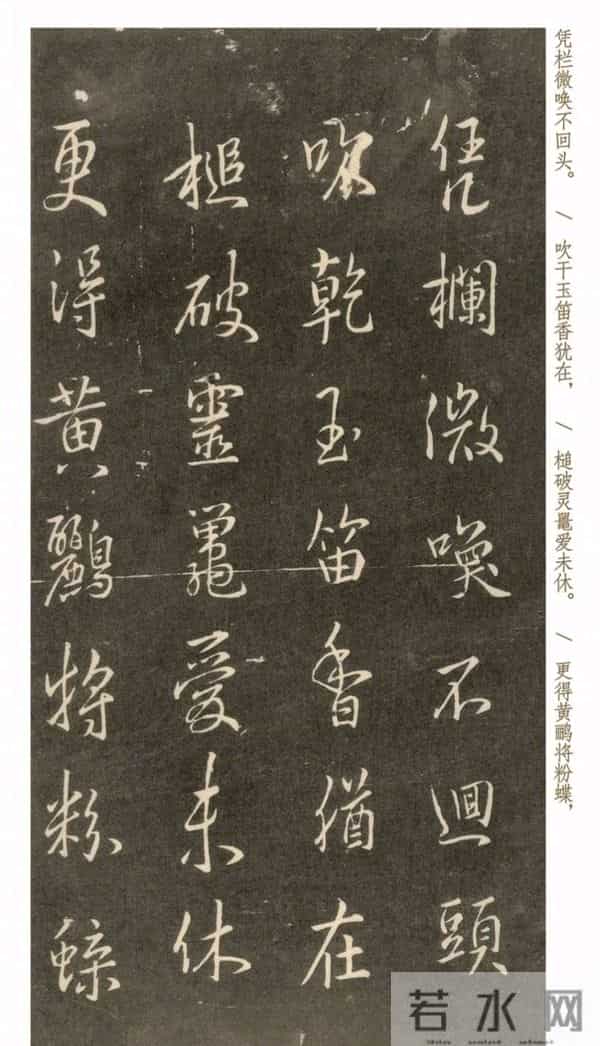 凭欄微喚不迴頭
吹乾玉笛香猶在
槌破靈鼉愛未休
更得黄鸝將粉蝶
凭栏微唤不回头。 / 吹干玉笛香犹在， / 槌破灵鼍爱未休。 / 更得黄鹂将粉蝶，
若水网